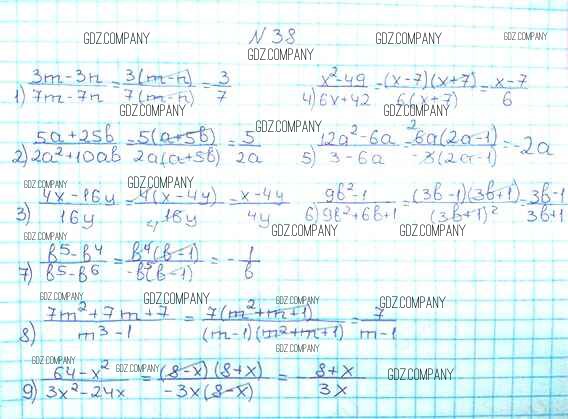 GDZ.COMPANY № 38 GDZ.COMPANY GDZ.COMPANY
GDZ.COMPANY
1) (3m-3n)/(7m-7n) = 3(m-n)/7(m-n) = 3/7
4) (x²-49)/(6x+42) = (x-7)(x+7)/6(x+7) = (x-7)/6
GDZ.COMPANY GDZ.COMPANY
2) (5a+25b)/(2a²+10ab) = 5(a+5b)/2a(a+5b) = 5/2a GDZ.COMPANY
5) (12a²-6a)/(3-6a) = 2 6a(2a-1)/-3(2a-1) = -2a
GDZ.COMPANY GDZ.COMPANY GDZ.COMPANY
3) (4x-16y)/16y = 4(x-4y)/4 16y = (x-4y)/4y
6) (9b²-1)/(9b²+6b+1) = (3b-1)(3b+1)/(3b+1)² = (3b-1)/(3b+1)
GDZ.COMPANY GDZ.COMPANY GDZ.COMPANY
7) (b⁵-b⁴)/(b⁵-b⁶) = b⁴(b-1)/-b⁵(b-1) = -1/b
GDZ.COMPANY GDZ.COMPANY GDZ.COMPANY GDZ.COMPANY
8) (7m²+7m+7)/(m³-1) = 7(m²+m+1)/(m-1)(m²+m+1) = 7/(m-1)
GDZ.COMPANY GDZ.COMPANY GDZ.COMPANY
9) (64-x²)/(3x²-24x) = (8-x)(8+x)/-3x(8-x) = (8+x)/3x GDZ.COMPANY